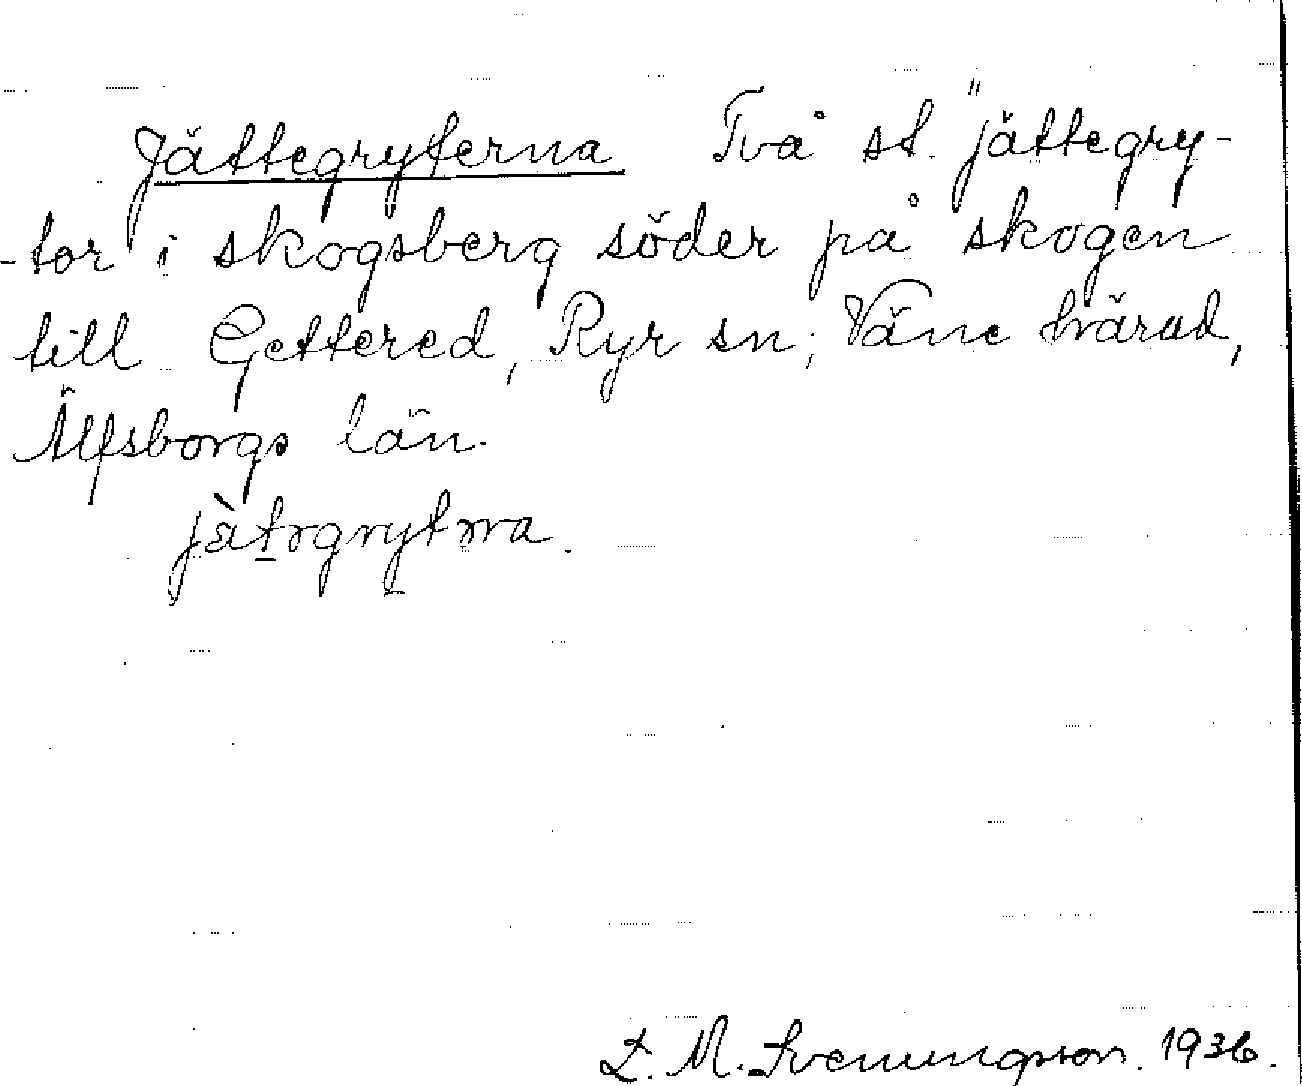 Jättegryterna Två st. "jättegry-
-tor i skogsberg söder på skogen
till Gettered, Ryr sn; Väne härad,
Älfsborgs län.
jàtrgrytrna.
L. M. Svenungsson. 1936.